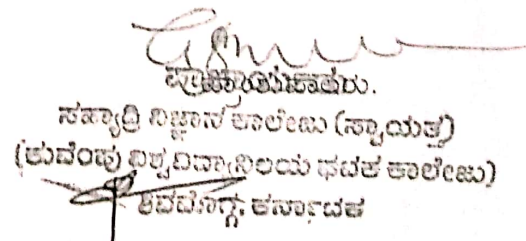 ಪ್ರಾಂಶುಪಾಲರು.
ಸಹ್ಯಾದ್ರಿ ವಿಜ್ಞಾನ ಕಾಲೇಜು (ಸ್ವಾಯತ್ತ)
(ಕುವೆಂಪು ವಿಶ್ವವಿದ್ಯಾನಿಲಯ ಘಟಕ ಕಾಲೇಜು)
ಶಿವಮೊಗ್ಗ, ಕರ್ನಾಟಕ